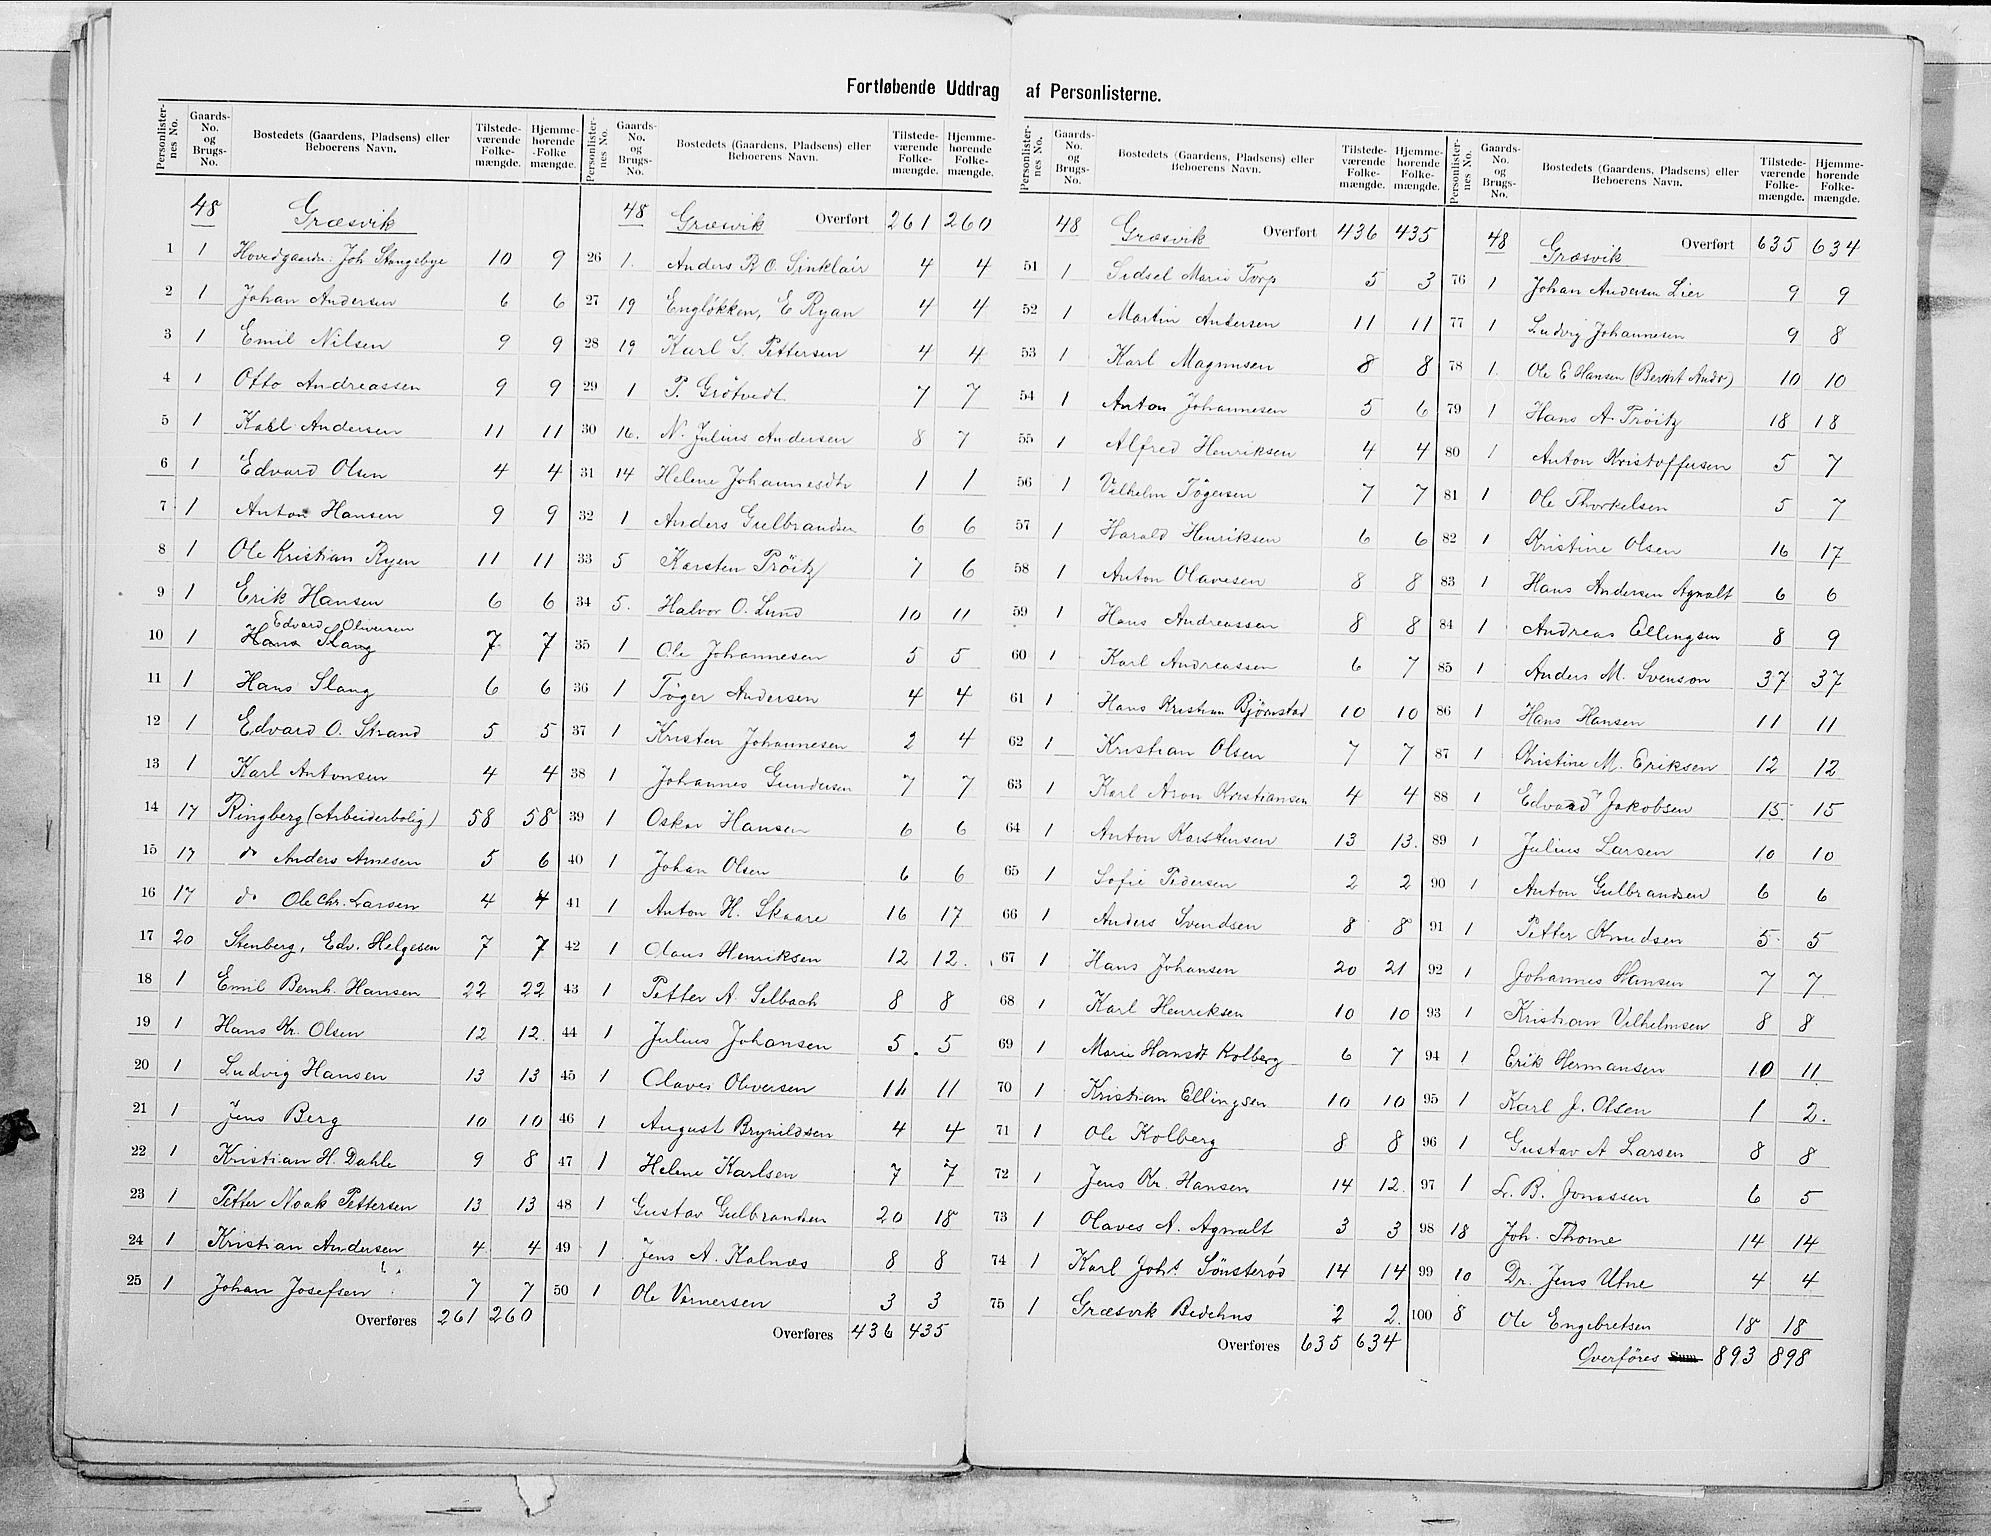 Fortløbende Uddrag af Personlisterne.
Personlister-nes No. | Gaards-No. og Brugs-No. | Bostedets (Gaardens, Pladsens) eller Beboerens Navn. | Tilstede-værende Folke-mængde. | Hjemme-hørende Folke-mængde.
48 Græsvik
1 1 Hovedgaarden: Joh Stangebye 10 9
2 1 Johan Andersen 6 6
3 1 Emil Nilsen 9 9
4 1 Otto Andreassen 9 9
5 1 Karl Andersen 11 11
6 1 Edvard Olsen 4 4
7 1 Anton Hansen 9 9
8 1 Ole Kristian Ryen 11 11
9 1 Erik Hansen 6 6
Edvard Oliversen
10 1 Hans Slang 7 7
11 1 Hans Slang 6 6
12 1 Edvard O. Strand 5 5
13 1 Karl Antonsen 4 4
14 17 Ringberg (Arbeiderbolig) 58 58
15 17 do Anders Arnesen 5 6
16 17 do Ole Chr. Larsen 4 4
17 20 Stenberg, Edv. Helgesen 7 7
18 1 Emil Bernh. Hansen 22 22
19 1 Hans Kr. Olsen 12 12
20 1 Ludvig Hansen 13 13
21 1 Jens Berg 10 10
22 1 Kristian H. Dahle 9 8
23 1 Petter Noak Pettersen 13 13
24 1 Kristian Andersen 4 4
25 1 Johan Josefsen 7 7
Overføres 261 260
Personlister-nes No. | Gaards-No. og Brugs-No. | Bostedets (Gaardens, Pladsens) eller Beboerens Navn. | Tilstede-værende Folke-mængde. | Hjemme-hørende Folke-mængde.
48 Græsvik Overført 261 260
26 1. Anders B. O. Sinklair 4 4
27 19 Engløkken, E Ryan 4 4
28 19 Karl G. Pettersen 4 4
29 1 P. Grötvedt 7 7
30 16. N. Julius Andersen 8 7
31 14 Helene Johannesdtr 1 1
32 1 Anders Gulbrandsen 6 6
33 5 Karsten Pröitz 7 6
34 5. Halvor O. Lund 10 11
35 1 Ole Johannesen 5 5
36 1 Töger Andersen 4 4
37 1 Kristen Johannesen 2 4
38 1 Johannes Gundersen 7 7
39 1 Oskar Hansen 6 6
40 1 Johan Olsen 6 6
41 1 Anton H. Skaare 16 17
42 1 Olaus Henriksen 12 12.
43 1 Petter A. Selbach 8 8
44 1 Julius Johansen 5. 5
45 1 Olaves Oliversen 11 11
46 1 August Brynildsen 4 4
47 1 Helene Karlsen 7 7
48 1 Gustav Gulbrandsen 20 18
49 1 Jens A. Kalnæs 8 8
50 1 Ole Vernersen 3 3
Overføres 436 435
Personlister-nes No. | Gaards-No. og Brugs-No. | Bostedets (Gaardens, Pladsens) eller Beboerens Navn. | Tilstede-værende Folke-mængde. | Hjemme-hørende Folke-mængde.
48 Græsvik Overført 436 435
51 1 Sidsel Marie Torp 5 3
52 1 Martin Andersen 11 11
53 1 Karl Magnusen 8 8
54 1 Anton Johannesen 5 6
55 1 Alfred Henriksen 4 4
56 1 Vilhelm Tögersen 7 7
57 1 Harald Henriksen 6 6
58 1 Anton Olavesen 8 8
59 1 Hans Andreassen 8 8
60 1 Karl Andreassen 6 7
61 1 Hans Kristian Bjørnstad 10 10
62 1 Kristian Olsen 7 7
63 1 Karl Aron Kristiansen 4 4
64 1 Anton Karstensen 13 13.
65 1 Sofie Pedersen 2 2
66 1 Anders Svendsen 8 8
67 1 Hans Johansen 20 21
68 1 Karl Henriksen 10 10
69 1 Marie Hansdt Kolberg 6 7
70 1 Kristian Ellingsen 10 10
71 1 Ole Kolberg 8 8
72 1 Jens Kr. Hansen 14 12.
73 1 Olaves A. Agnalt 3 3
74 1 Karl Johs Sönsteröd 14 14
75 1 Græsvik Bedehus 2 2.
Overføres 635 634
Personlister-nes No. | Gaards-No. og Brugs-No. | Bostedets (Gaardens, Pladsens) eller Beboerens Navn. | Tilstede-værende Folke-mængde. | Hjemme-hørende Folke-mængde.
48 Græsvik Overført 635 634
76 1 Johan Andersen Lier 9 9
77 1 Ludvig Johannesen 9 8
78 1. Ole E Hansen (Bernt Andr) 10 10
79 1 Hans A. Pröitz 18 18
80 1 Anton Kristoffersen 5 7
81 1 Ole Thorkelsen 5 7
82 1 Kristine Olsen 16 17
83 1 Hans Andersen Agnalt 6 6
84 1 Andreas Ellingsen 8 9
85 1 Anders M. Svenson 37 37
86 1 Hans Hansen 11 11
87 1 Christine M. Eriksen 12 12
88 1 Edvard Jakobsen 15 15
89 1 Julius Larsen 10 10
90 1 Anton Gulbrandsen 6 6
91 1 Petter Knudsen 5 5
92 1 Johannes Hansen 7 7
93 1 Kristian Vilhelmsen 8 8
94 1 Erik Hermansen 10 11
95 1 Karl J. Olsen 1 2.
96 1 Gustav A Larsen 8 8
97 1 L. B. Jonassen 6 5
98 18 Joh. Thorne 14 14
99 10 Dr. Jens Utne 4 4
100 8 Ole Engebretsen 18 18
Overföres Sum 893 898